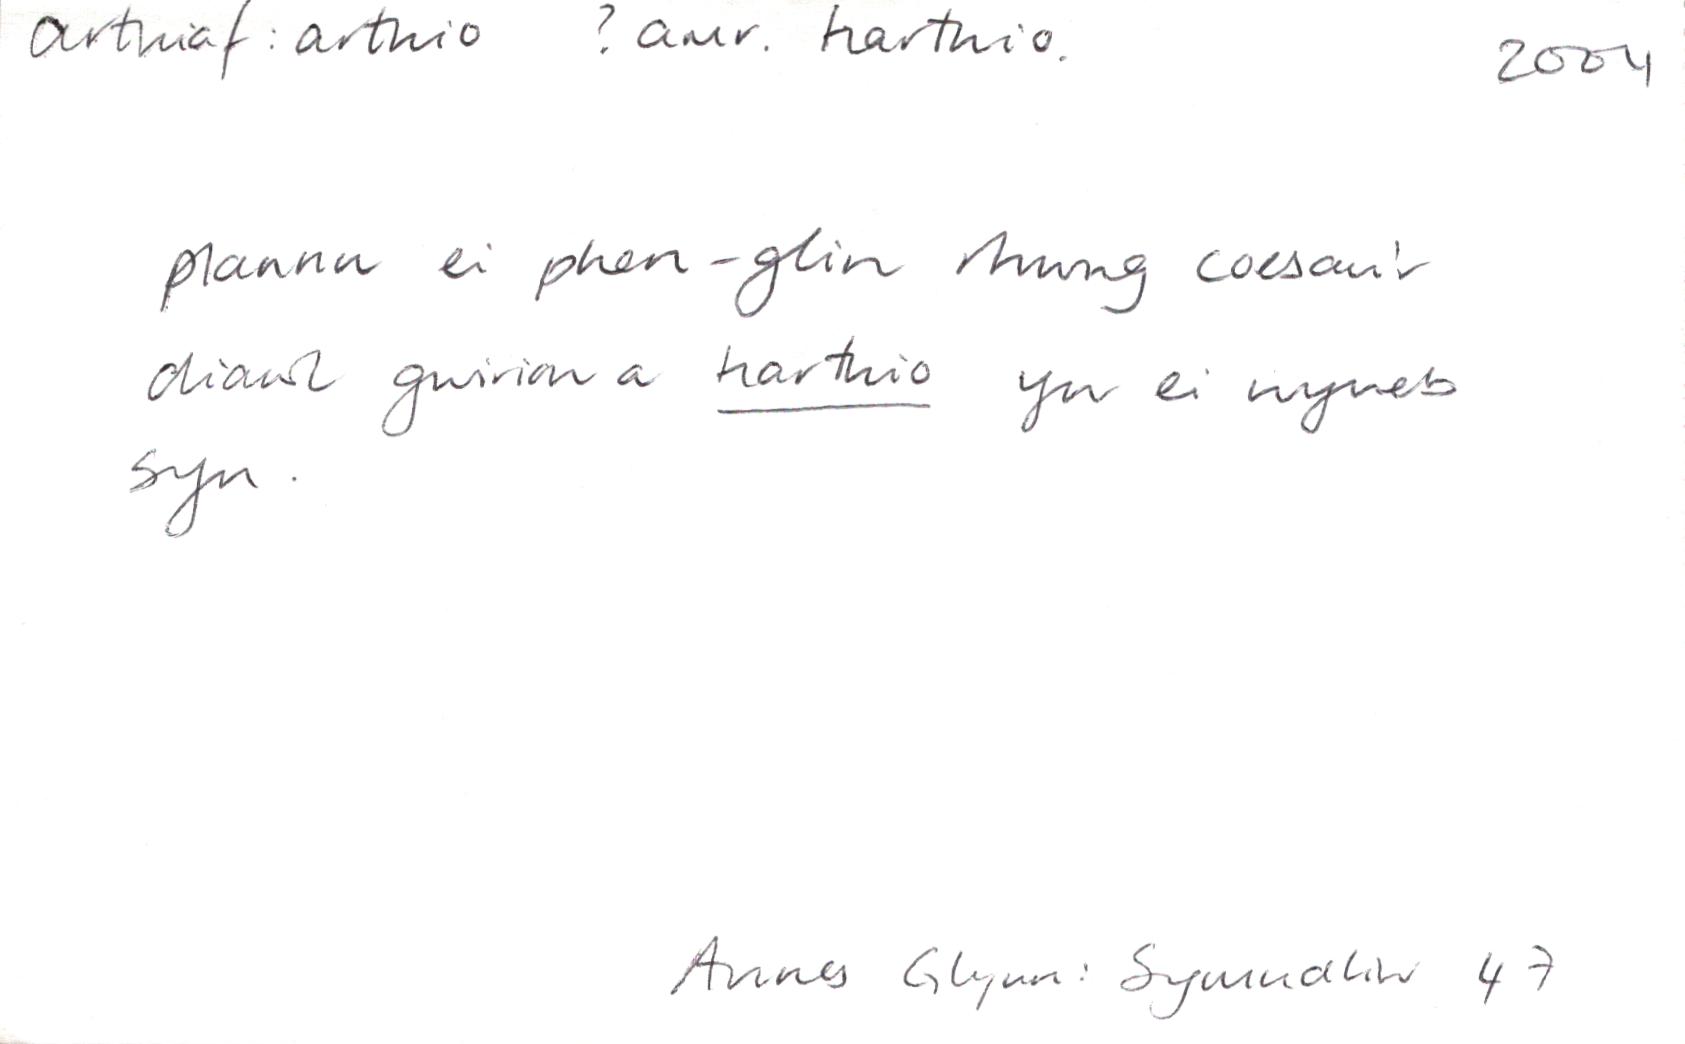 arthiaf: arthio ? amr. harthio. 2004
plannu ei phen-glin rhwng coesau'r
diawl gwirion a harthio yn ei wyneb
syn.
Annes Glynn: Symudliw 47